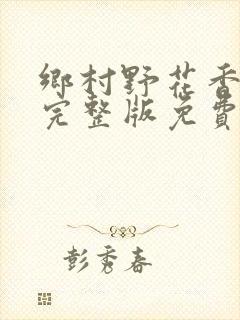 鄉村野花香
完整版免費
彭秀春